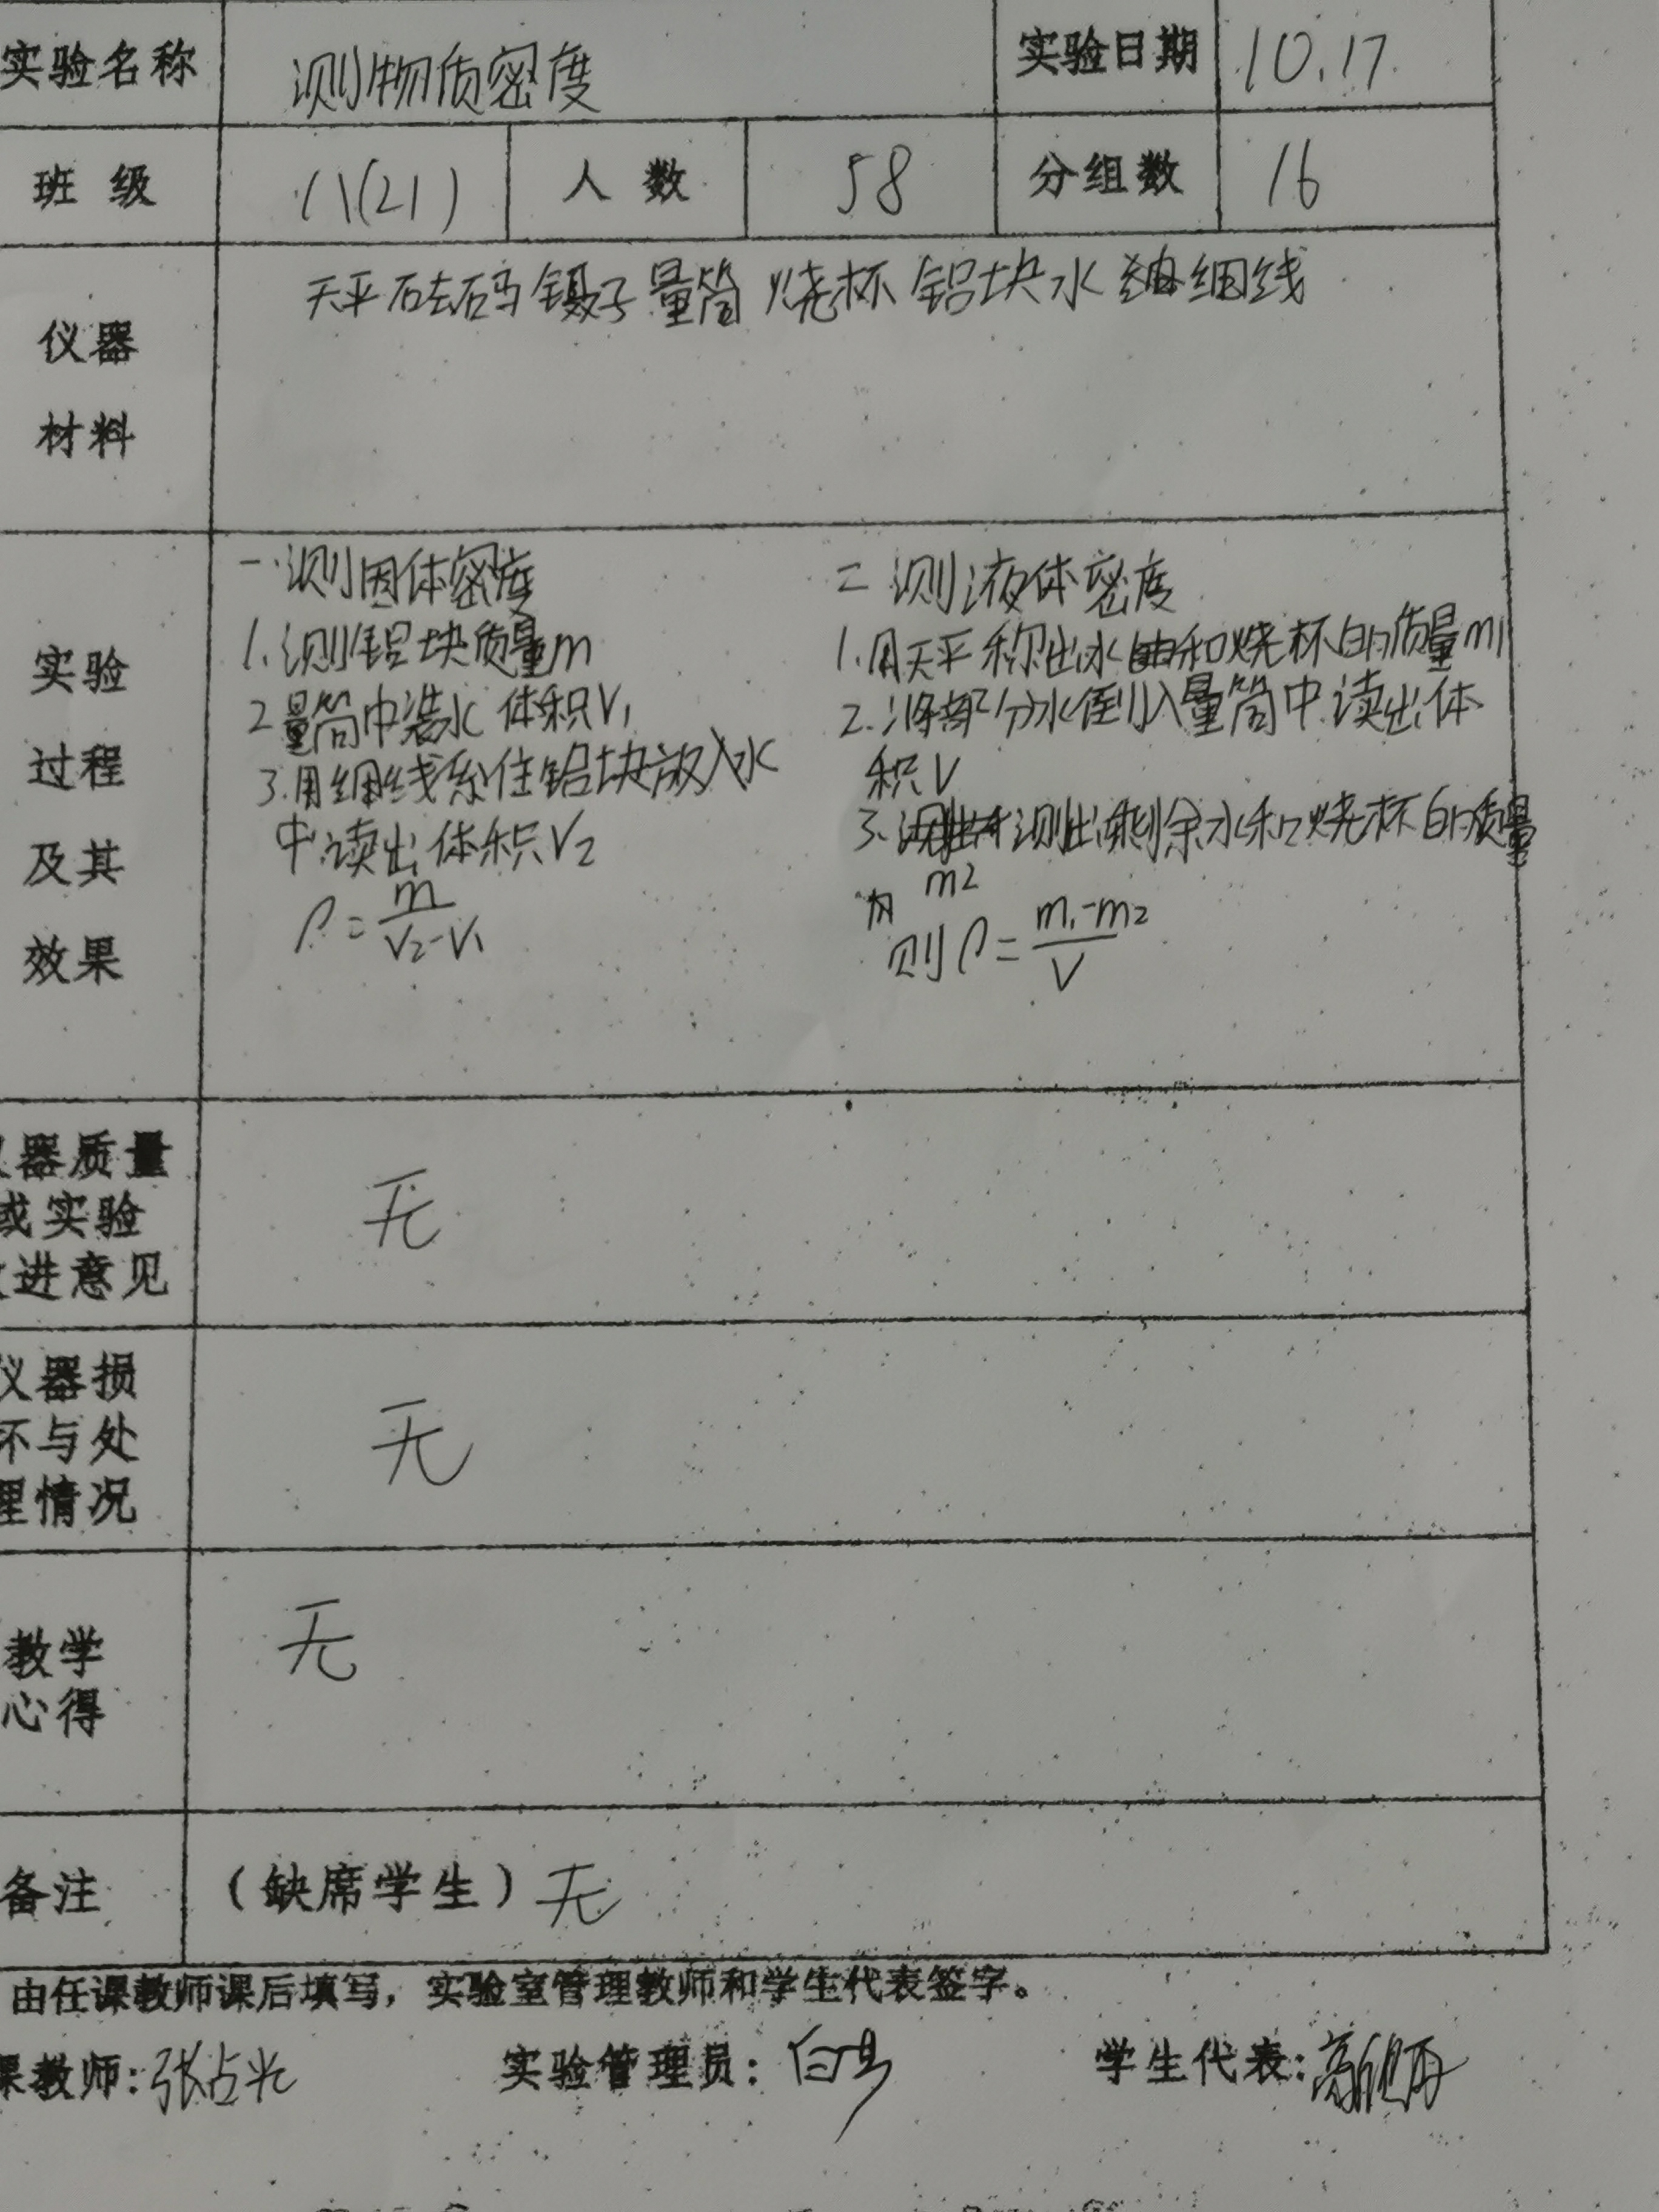 实验名称 测物质密度 实验日期 10.17
班级 八(21) 人数 58 分组数 16
仪器
材料
天平 砝码 镊子 量筒 烧杯 铝块 水 细线
实验
过程
及其
效果
一.测固体密度
1.测铝块质量m
2 量筒中装水 体积V₁
3.用细线系住铝块放入水
中.读出体积V₂
ρ=m/(V₂-V₁)
二 测液体密度
1.用天平称出水和烧杯的质量m₁
2.将部分水倒入量筒中.读出体
积V
3.测出剩余水和烧杯的质量
为 m2
则ρ=(m₁-m₂)/V
器质量
或实验
进意见
无
仪器损
坏与处
理情况
无
教学
心得
无
备注 (缺席学生)无
由任课教师课后填写,实验室管理教师和学生代表签字。
课教师:张占光 实验管理员: 学生代表: